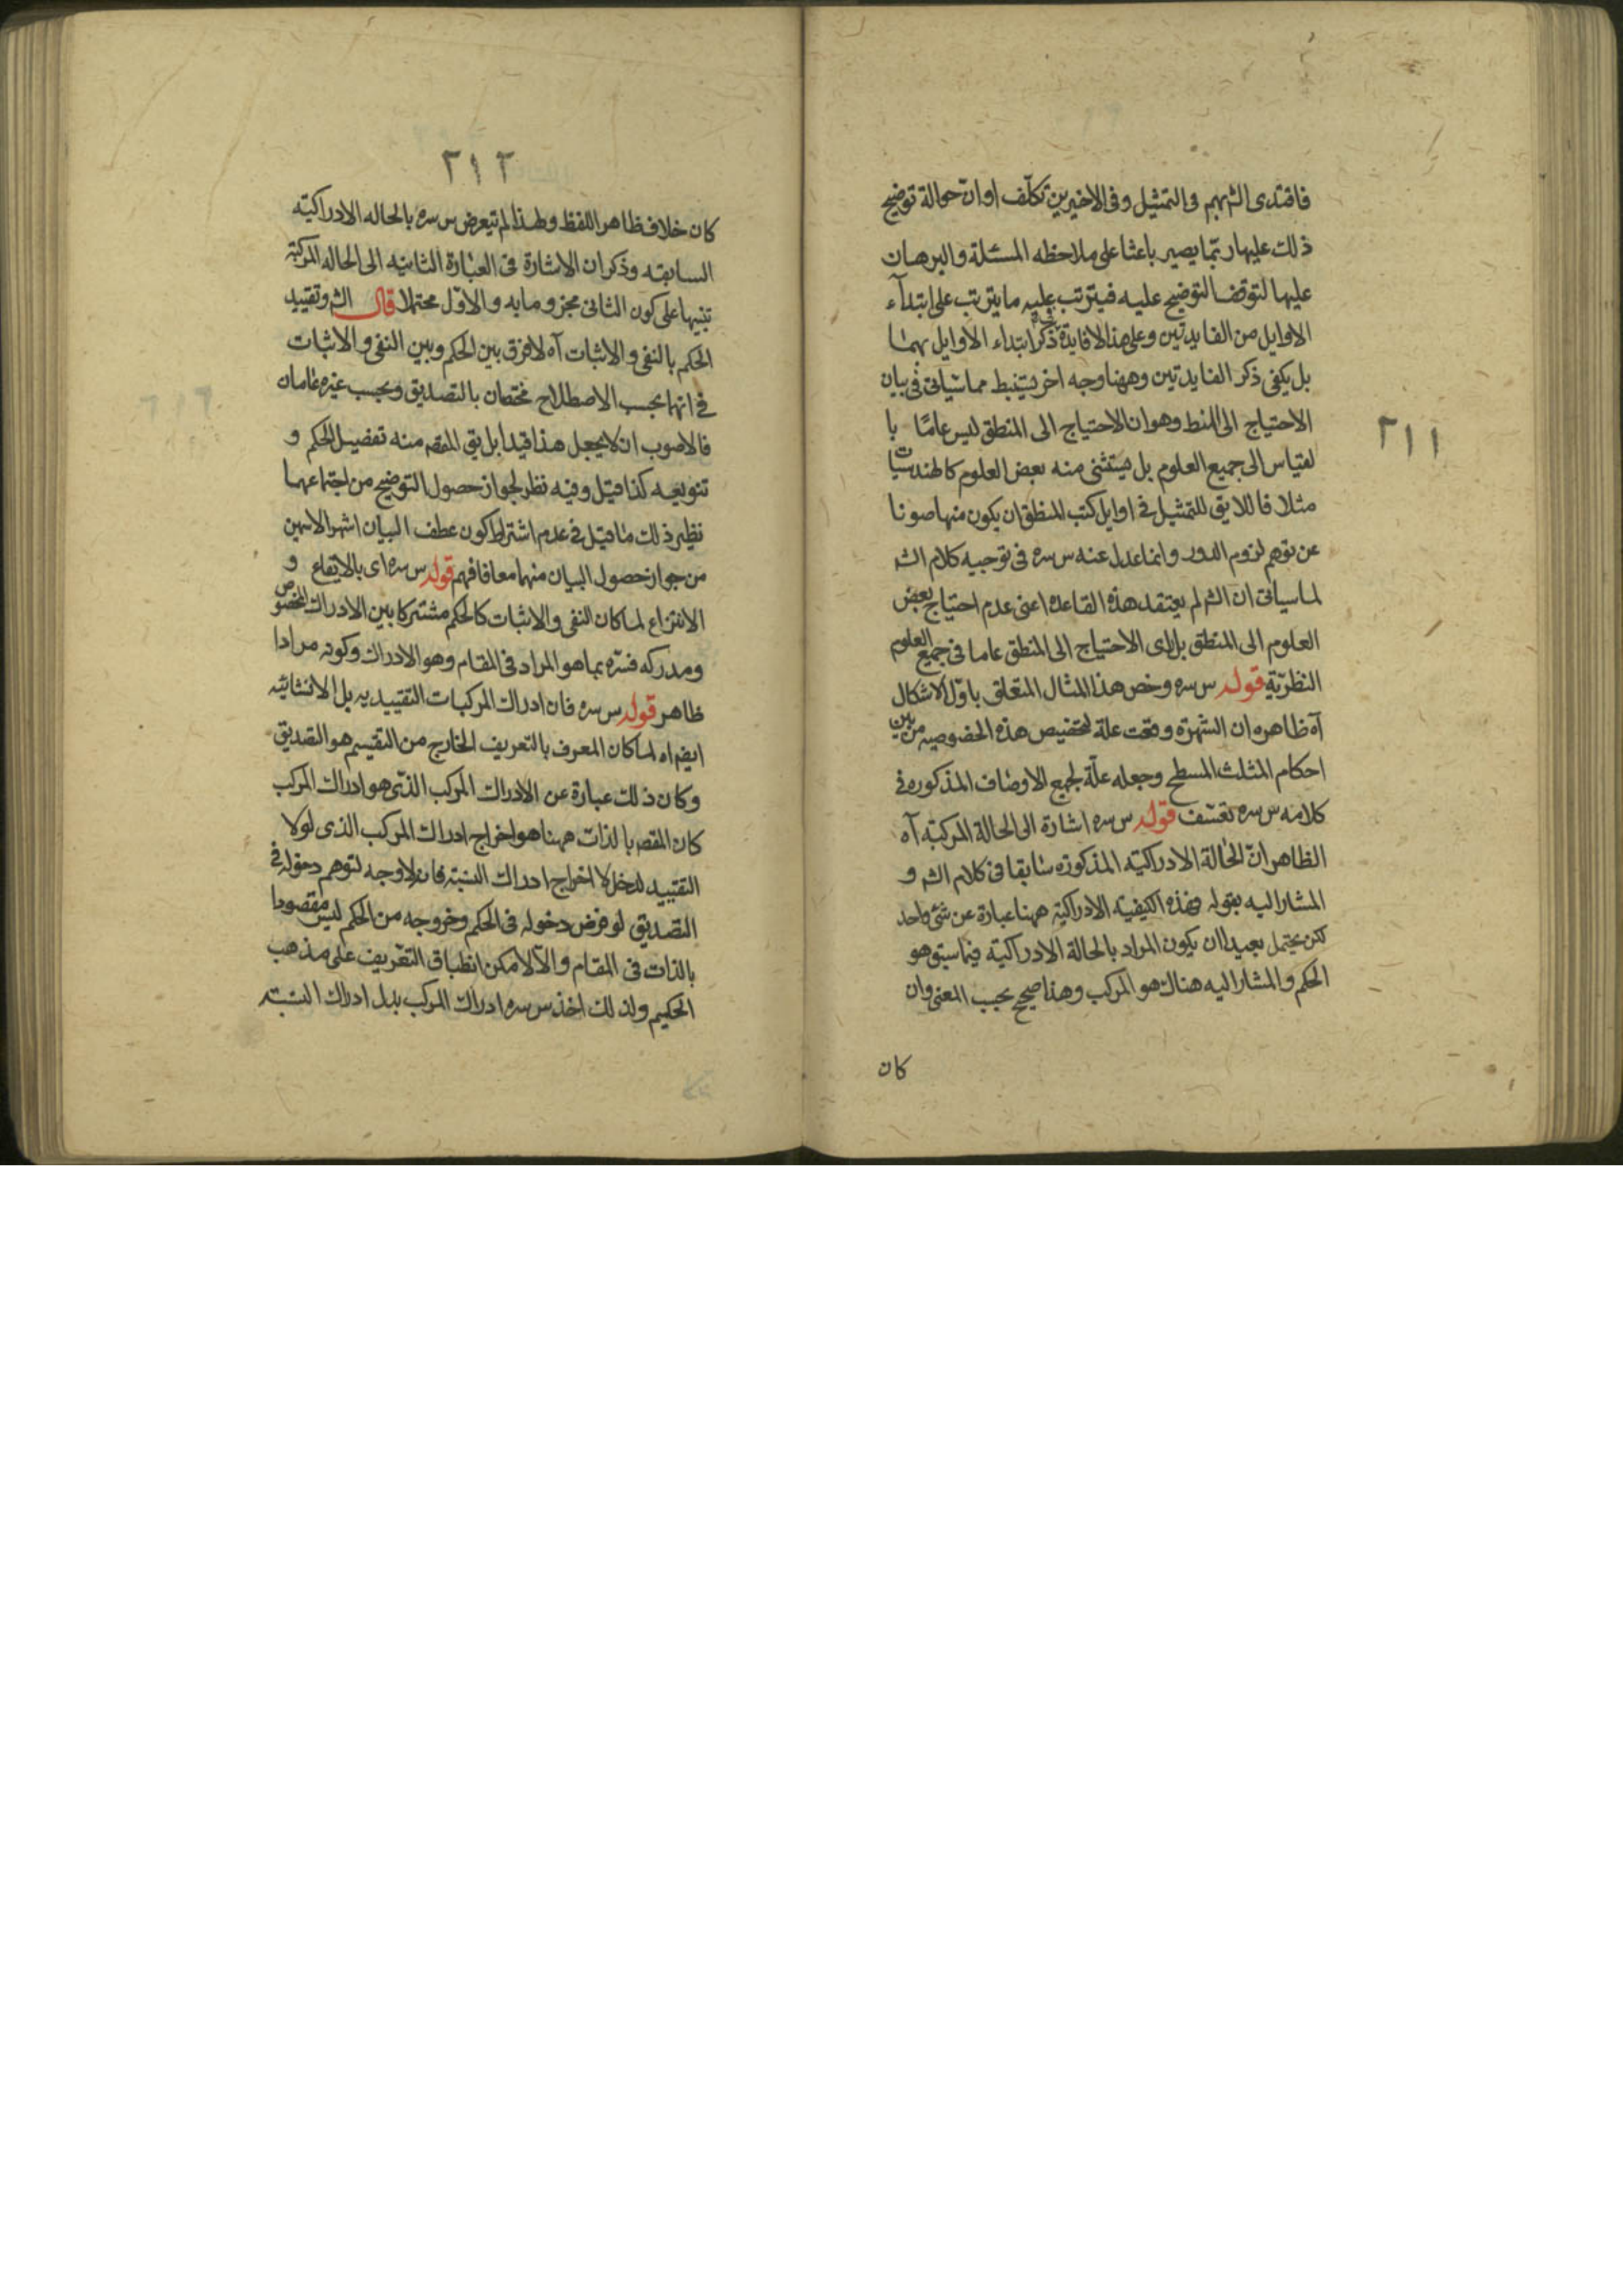 ٢١١
فاقتدى الش بهم فى التمثيل وفى الاخيرين تكلف او ان حوالة توضيح
ذلك عليها ربما يصير باعثا على ملاحظه المسئلة والبرهان
عليها لتوقف التوضيح عليه فيترتب عليه ما يترتب على ابتدآء
الاوايل من الفايدتين وعلى هذا لا فايدة فى ذكر ابتداء الاوايل بهما
بل يكفى ذكر الفايدتين وههنا وجه اخر يستنبط مما سياتى فى بيان
الاحتياج الى المنط وهو ان الاحتياج الى المنطق ليس عامًا با
لقياس الى جميع العلوم بل يستثنى منه بعض العلوم كالهندسيات
مثلا فاللايق للتمثيل فى اوايل كتب المنطق ان يكون منها صونا
عن توهم لزوم الدور وانما عدل عنه س سره فى توجيه كلام الش
لما سياتى ان الش لم يعتقد هذه القاعده اعنى عدم احتياج بعض
العلوم الى المنطق بل راى الاحتياج الى المنطق عاما فى جميع العلوم
النظريّة قوله س سره وخص هذا المثال المتعلق باوّل الاشكال
آه ظاهره ان الشهرة وقعت علة لتخصيص هذه الخصوصيه من بين
احكام المثلث المسطح وجعله علّة لجميع الاوصاف المذكوره فى
كلامه س سره تعسّف قوله س سره اشارة الى الحالة المركبّة آه
الظاهر انّ الحالة الادراكيّه المذكوره سابقا فى كلام الش و
المشار اليه بقوله فهذه الكيفية الادراكيّة ههنا عبارة عن شئ واحد
لكن يحتمل بعيدا ان يكون المراد بالحالة الادراكيّة فيما سبق هو
الحكم والمشار اليه هناك هو المركب وهذا صحيح بحسب المعنى وان
كان
٢١٢
كان خلاف ظاهر اللفظ ولهذا لم يتعرض س سره بالحاله الادراكيّه
السابقه وذكر ان الاشارة فى العبارة الثانيه الى الحاله المركبّة
تنبيها على كون الثانى مجزوما به والاوّل محتملا قال الش وتقييد
الحكم بالنفى والاثبات آه لا فرق بين الحكم وبين النفى والاثبات
فى انها بحسب الاصطلاح مختصان بالتصديق وبحسب غيره عامان
فالاصوب ان لا يجعل هذا قيدا بل يق المقص منه تفصيل الحكم و
تنويعه كذا قيل وفيه نظر لجواز حصول التوضيح من اجتماعهما
نظير ذلك ما قيل فى عدم اشتراط كون عطف البيان اشهر الاسمين
من جواز حصول البيان منهما معا فافهم قوله س سره اى بالايقاع و
الانتزاع لما كان النفى والاثبات كالحكم مشتركا بين الادراك المخصوص
ومدركه فسّره بما هو المراد فى المقام وهو الادراك وكونه مرادا
ظاهر قوله س سره فان ادراك المركبات التقييديه بل الانشائيه
ايض اه لما كان المعرف بالتعريف الخارج من التقسيم هو التصديق
وكان ذلك عبارة عن الادراك المركب الذى هو ادراك المركب
كان المقص بالذات ههنا هو اخراج ادراك المركب الذى لولا
التقييد لدخل لا اخراج ادراك النسبة فانه لا وجه لتوهم دخوله فى
التصديق لو فرض دخوله فى الحكم وخروجه من الحكم ليس مقصودا
بالذات فى المقام والّا لامكن انطباق التعريف على مذهب
الحكيم ولذلك اخذ س سره ادراك المركب بدل ادراك النسبة